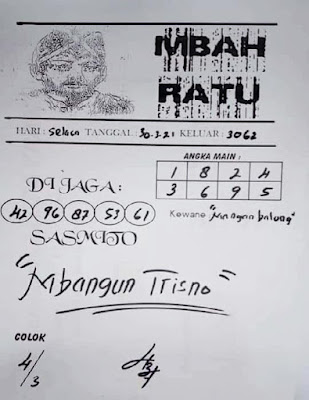 MBAH
RATU
HARI : Selasa TANGGAL : 30-3-21 KELUAR : 3062
ANGKA MAIN :
1 8 2 4
3 6 9 5
DI JAGA :
42 96 87 53 61
Kewane "Mangan balung"
SASMITO
"Mbangun Trisno"
COLOK
4/3